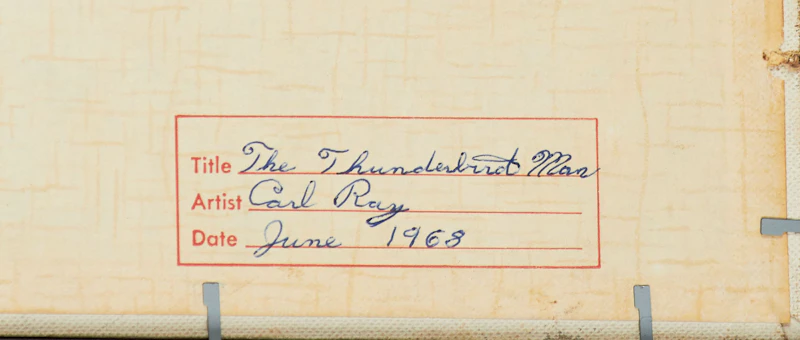 Title The Thunderbird Man
Artist Carl Ray
Date June 1968